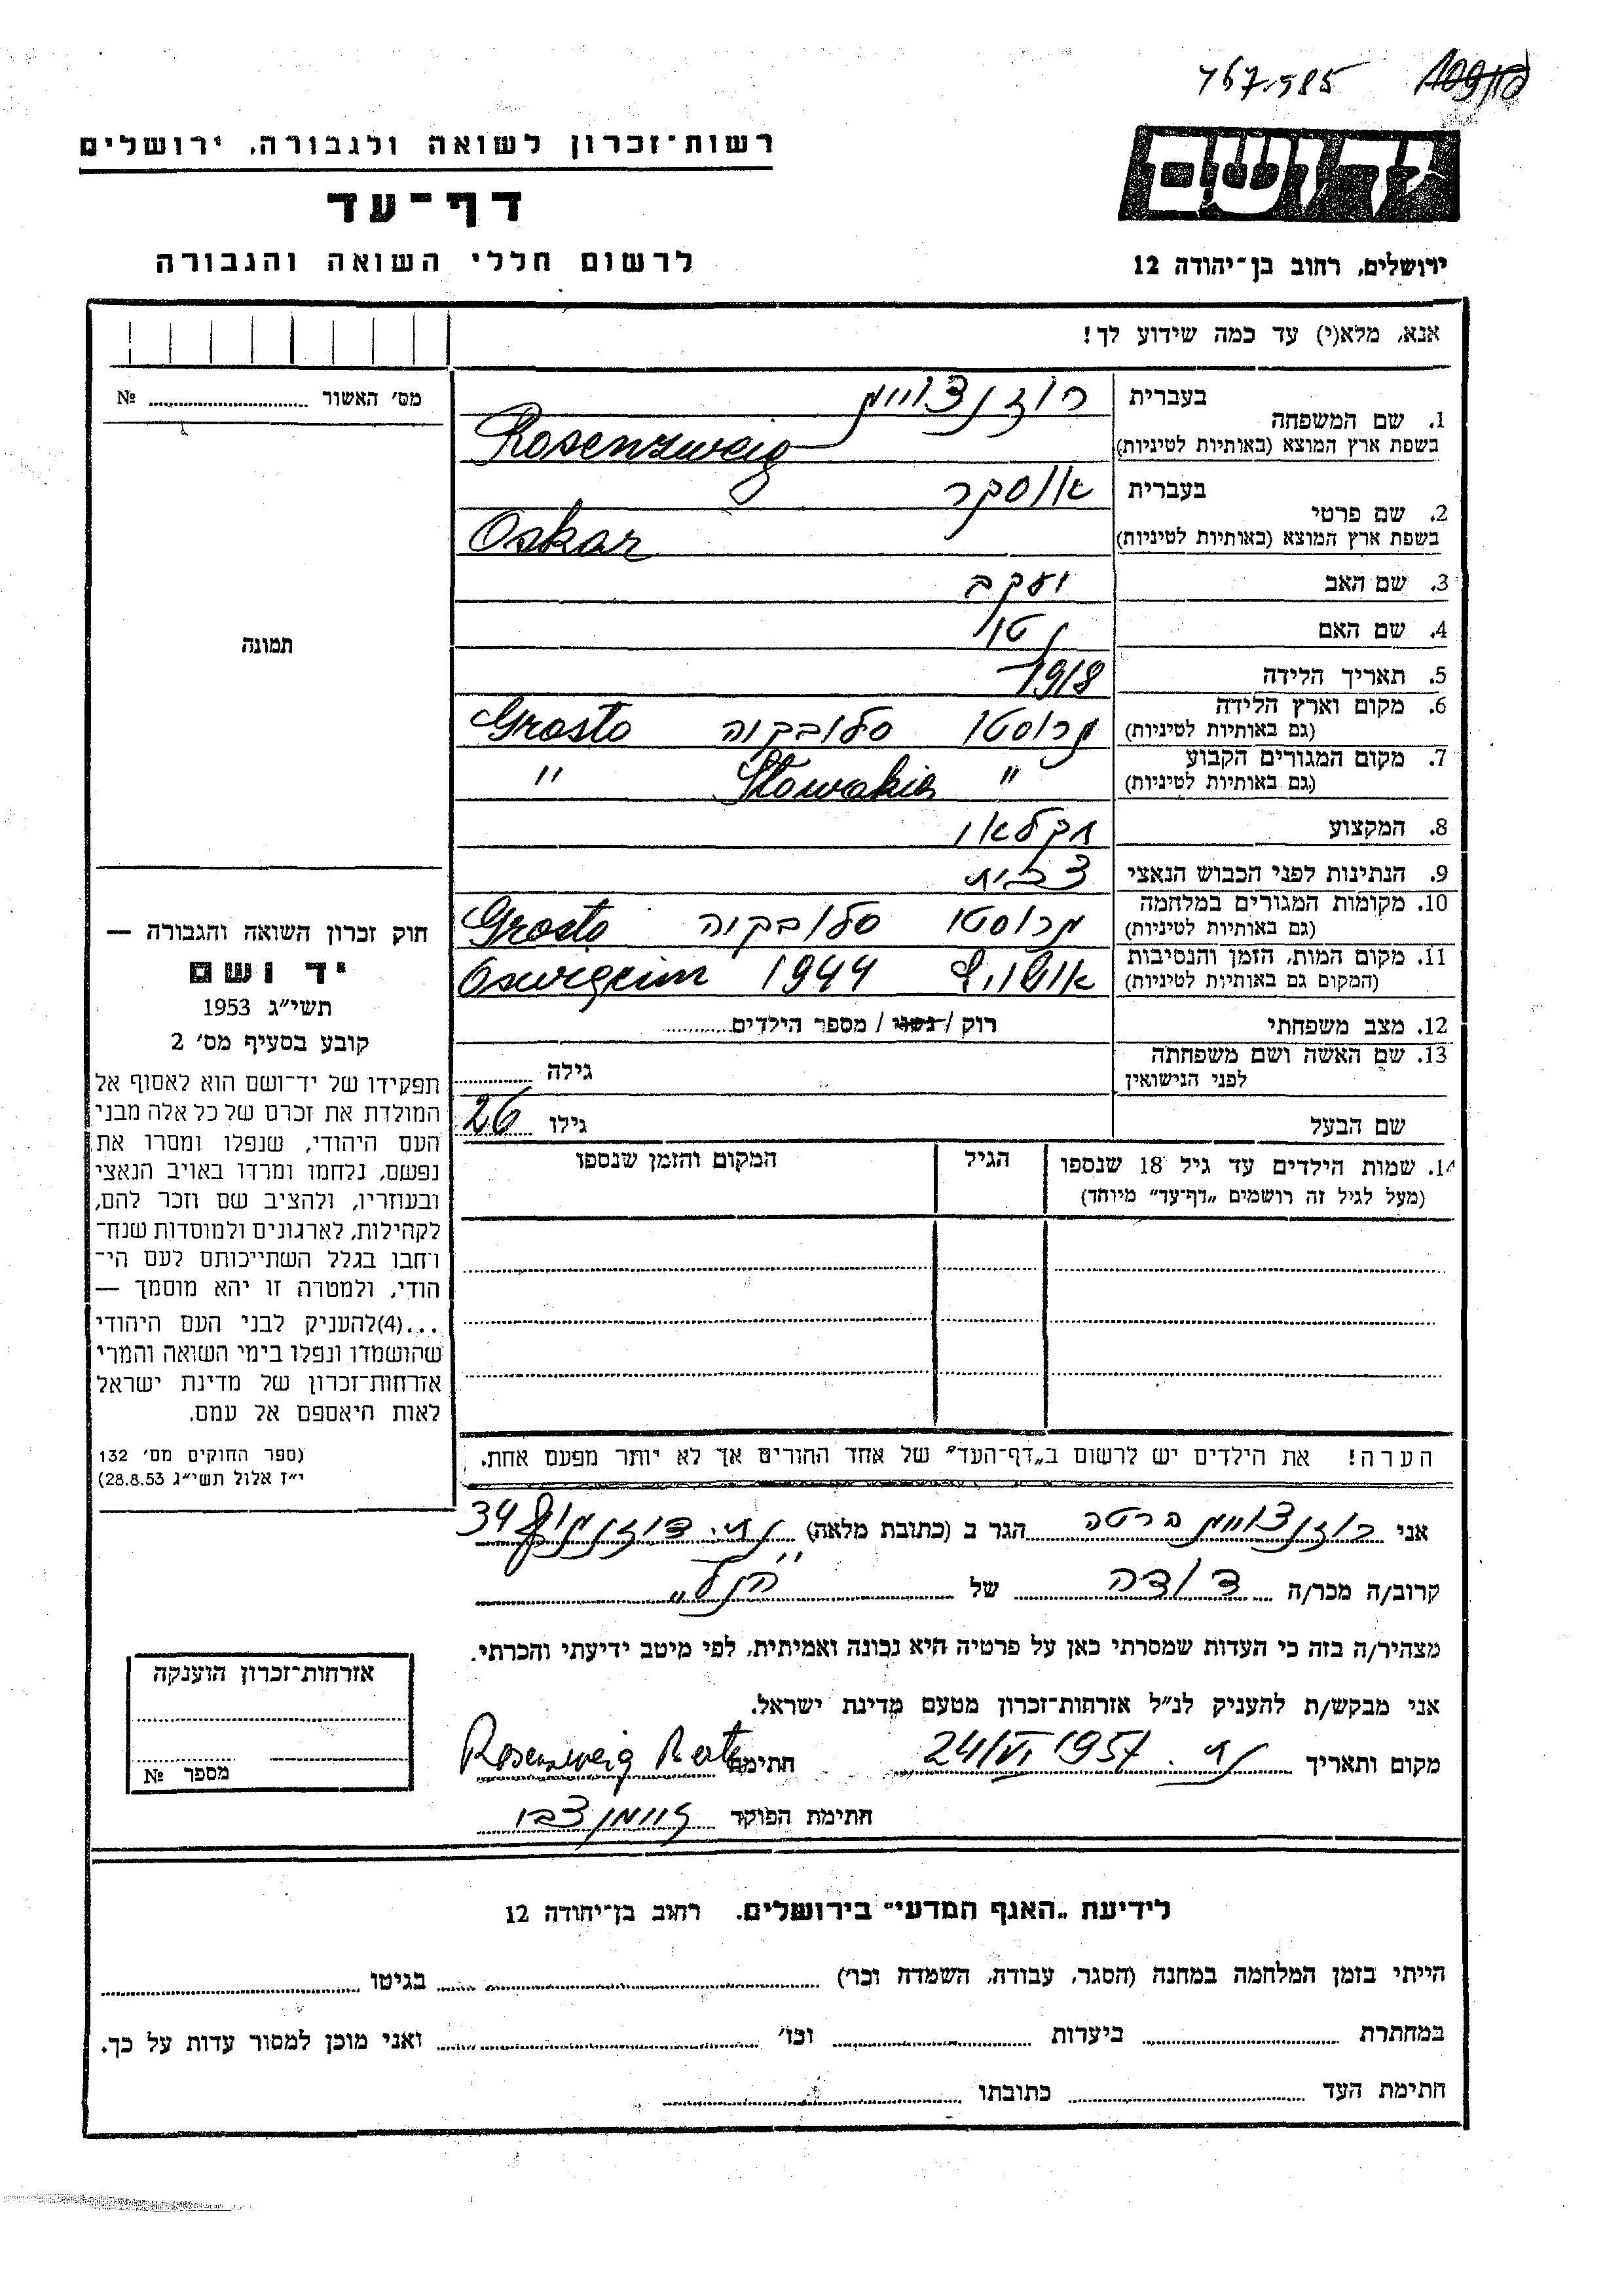 767.985
רשות־זכרון לשואה ולגבורה, ירושלים
דף־עד
לרשום חללי השואה והגבורה
יד ושם
ירושלים, רחוב בן־יהודה 12
אנא, מלא(י) עד כמה שידוע לך!
מס׳ האשור № 
בעברית רוזנצווייג
1. שם המשפחה
בשפת ארץ המוצא (באותיות לטיניות) Rosenzweig
בעברית אוסקר
2. שם פרטי
בשפת ארץ המוצא (באותיות לטיניות) Oskar
3. שם האב יעקב
4. שם האם
5. תאריך הלידה 1918
6. מקום וארץ הלידה גרוסטו סלובקיה Grosto
(גם באותיות לטיניות)
7. מקום המגורים הקבוע " Slowakia "
(גם באותיות לטיניות)
8. המקצוע חקלאי
9. הנתינות לפני הכבוש הנאצי צ'כית
10. מקומות המגורים במלחמה גרוסטו סלובקיה Grosto
(גם באותיות לטיניות)
11. מקום המות, הזמן והנסיבות אושויץ 1944 Oswięcim
(המקום גם באותיות לטיניות)
12. מצב משפחתי רוק / נשוי / מספר הילדים
13. שם האשה ושם משפחתה גילה
לפני הנישואין
שם הבעל גילו 26
14. שמות הילדים עד גיל 18 שנספו הגיל המקום והזמן שנספו
(מעל לגיל זה רושמים „דף־עד" מיוחד)
הערה! את הילדים יש לרשום ב„דף־העד" של אחד ההורים אך לא יותר מפעם אחת.
תמונה
חוק זכרון השואה והגבורה —
יד ושם
תשי״ג 1953
קובע בסעיף מס׳ 2
תפקידו של יד־ושם הוא לאסוף אל
המולדת את זכרם של כל אלה מבני
העם היהודי, שנפלו ומסרו את
נפשם, נלחמו ומרדו באויב הנאצי
ובעוזריו, ולהציב שם וזכר להם,
לקהילות, לארגונים ולמוסדות שנח־
רחבו בגלל השתייכותם לעם הי־
הודי, ולמטרה זו יהא מוסמך —
...(4)להעניק לבני העם היהודי
שהושמדו ונפלו בימי השואה והמרי
אזרחות־זכרון של מדינת ישראל
לאות היאספם אל עמם.
(ספר החוקים מס׳ 132
י״ז אלול תשי״ג 28.8.53)
אני רוזנצווייג ברטה הגר ב (כתובת מלאה) 34
קרוב/ה מכר/ה דודה של "הנ"ל"
מצהיר/ה בזה כי העדות שמסרתי כאן על פרטיה היא נכונה ואמיתית, לפי מיטב ידיעתי והכרתי.
אני מבקש/ת להעניק לנ״ל אזרחות־זכרון מטעם מדינת ישראל.
מקום ותאריך 24/VI 1957 חתימה Rosenzweig Berta
חתימת הפוקד
אזרחות־זכרון הוענקה
מספר №
לידיעת „האגף המדעי" בירושלים, רחוב בן־יהודה 12
הייתי בזמן המלחמה במחנה (הסגר, עבודה, השמדה וכו׳) בגיטו
במחתרת ביערות וכו׳ ואני מוכן למסור עדות על כך.
חתימת העד כתובתו